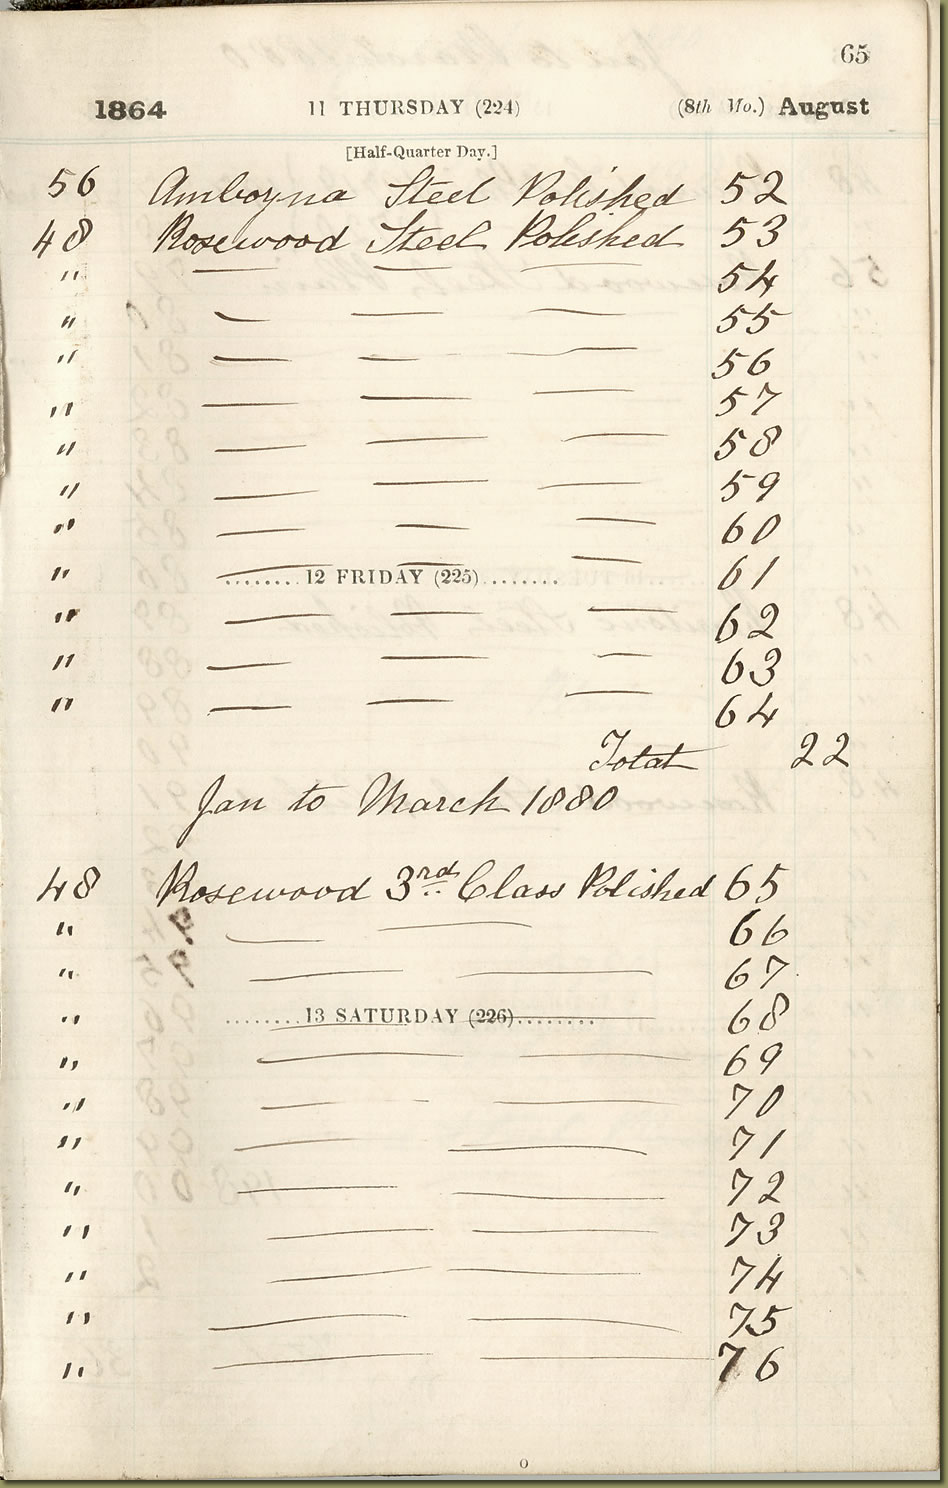 65
1864 11 THURSDAY (224) (8th Mo.) August
[Half-Quarter Day.]
56 Amboyna Steel Polished 52
48 Rosewood Steel Polished 53
" — — — 54
" — — — 55
" — — — 56
" — — — 57
" — — — 58
" — — — 59
" — — — 60
" — — — 61
........12 FRIDAY (225)........
" — — — 62
" — — — 63
" — — — 64
Total 22
Jan to March 1880
48 Rosewood 3rd Class Polished 65
" — — 66
" — — 67
" — — 68
........13 SATURDAY (226)........
" — — 69
" — — 70
" — — 71
" — — 72
" — — 73
" — — 74
" — — 75
" — — 76
o